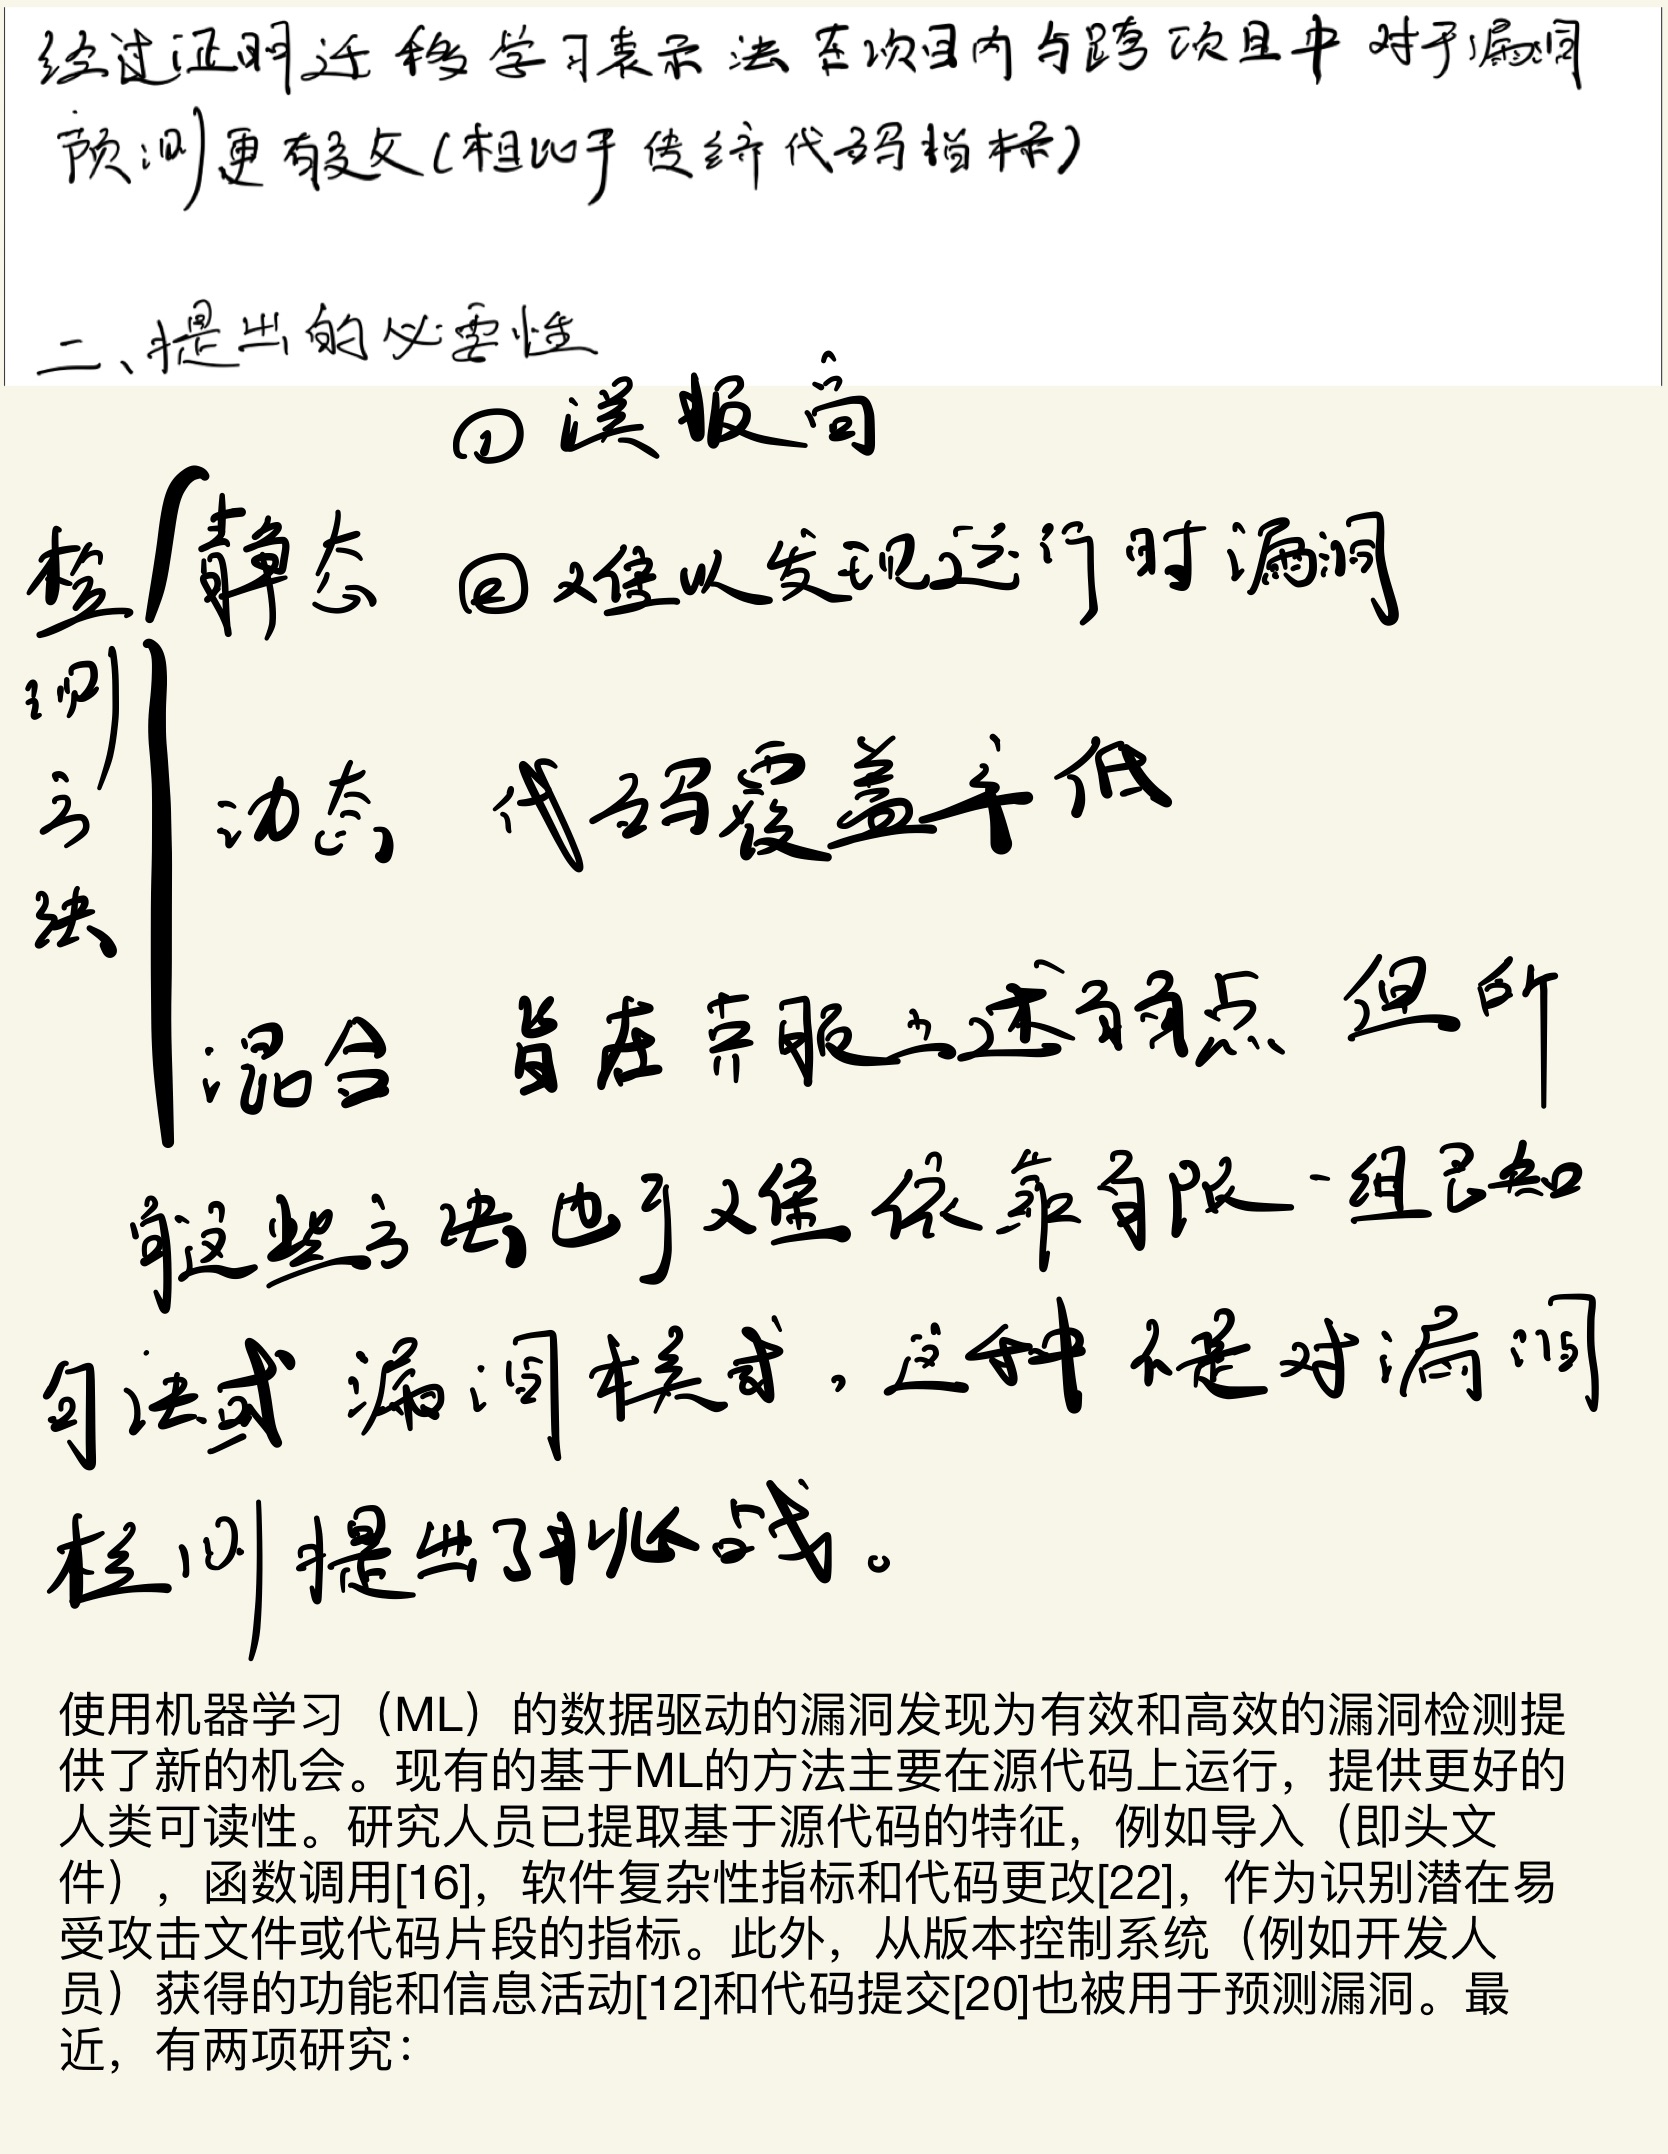 经过证明迁移学习表示法在项目内与跨项目中对于漏洞
预测更有效(相比于传统代码指标)
二、提出的必要性
① 误报高
检测方法
静态 ② 难以发现运行时漏洞
动态 代码覆盖率低
混合 旨在克服上述有弱点 但所
有这些方法也于难依靠有限一组已知
句法或漏洞模式,这种不是对漏洞
检测提出了挑战。
使用机器学习(ML)的数据驱动的漏洞发现为有效和高效的漏洞检测提
供了新的机会。现有的基于ML的方法主要在源代码上运行,提供更好的
人类可读性。研究人员已提取基于源代码的特征,例如导入(即头文
件),函数调用[16],软件复杂性指标和代码更改[22],作为识别潜在易
受攻击文件或代码片段的指标。此外,从版本控制系统(例如开发人
员)获得的功能和信息活动[12]和代码提交[20]也被用于预测漏洞。最
近,有两项研究: